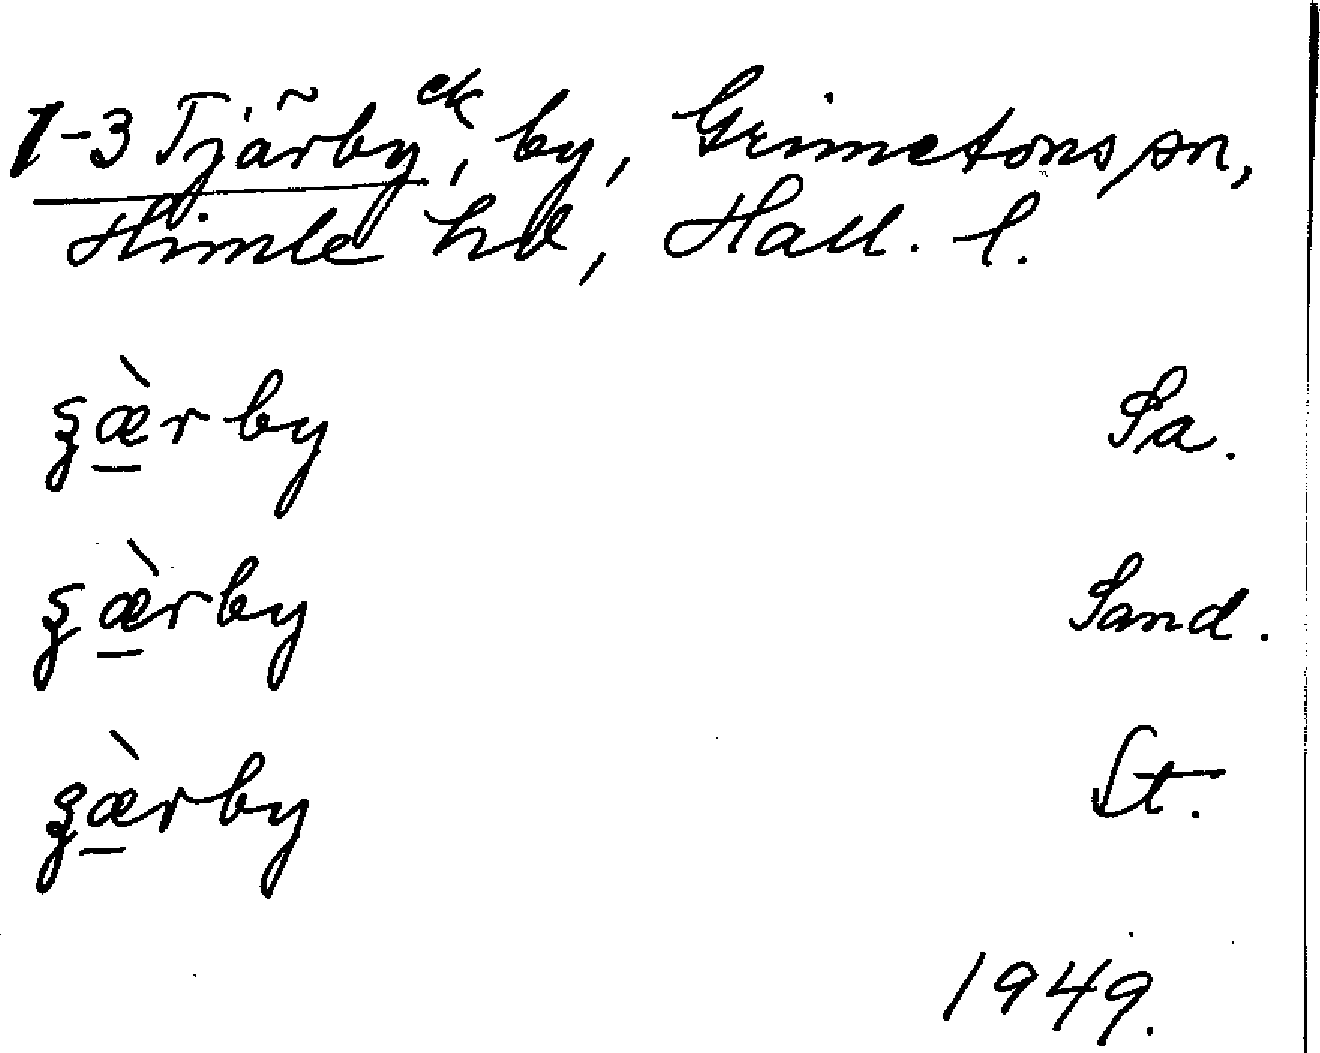 1-3 Tjärby ek, by, Grimetons sn,
Himle hd, Hall. l.
ʂæ̠̀rby Sa.
ʂæ̠̀rby Sand.
ʂæ̠̀rby St.
1949.